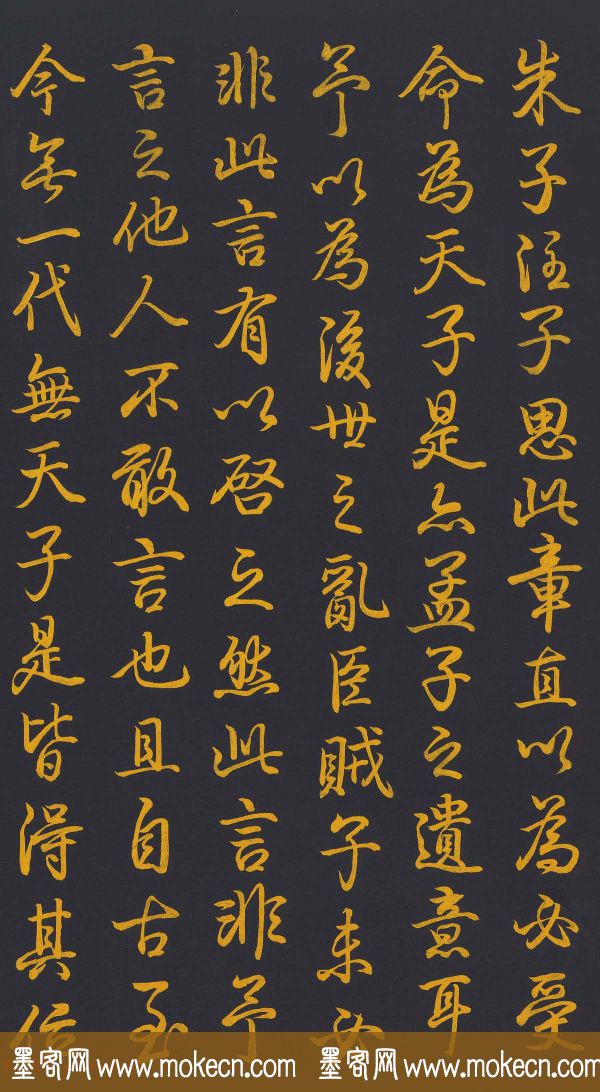 朱子注子思此章直以為必受
命為天子是亦孟子之遺意耳
予以為後世之亂臣賊子未必
非此言有以啓之然此言非予
言之他人不敢言也且自古至
今無一代無天子是皆得其
墨客网 www.mokecn.com 墨客网 www.mokecn.com